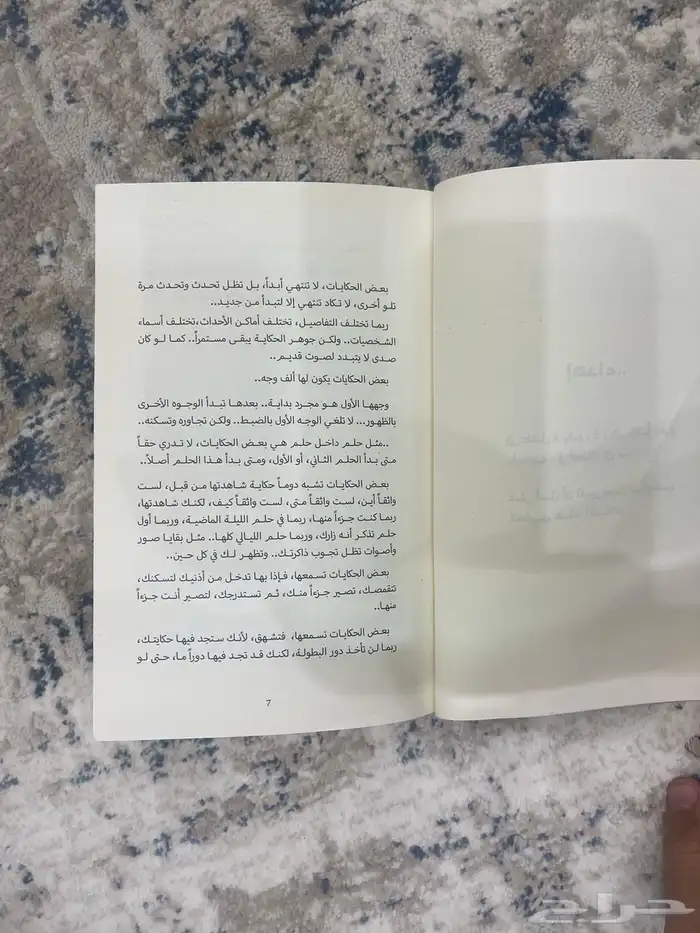 إهداء..
بعض الحكايات، لا تنتهي أبداً، بل تظل تحدث وتحدث مرة
تلو أخرى، لا تكاد تنتهي إلا لتبدأ من جديد..
ربما تختلف التفاصيل، تختلف أماكن الأحداث،تختلف أسماء
الشخصيات.. ولكن جوهر الحكاية يبقى مستمراً.. كما لو كان
صدى لا يتبدد لصوت قديم..
بعض الحكايات يكون لها ألف وجه..
وجهها الأول هو مجرد بداية.. بعدها تبدأ الوجوه الأخرى
بالظهور... لا تلغي الوجه الأول بالضبط.. ولكن تجاوره وتسكنه..
..مثل حلم داخل حلم هي بعض الحكايات، لا تدري حقاً
متى بدأ الحلم الثاني، أو الأول، ومتى بدأ هذا الحلم أصلاً..
بعض الحكايات تشبه دوماً حكاية شاهدتها من قبل، لست
واثقاً أين، لست واثقاً متى، لست واثقاً كيف، لكنك شاهدتها،
ربما كنت جزءاً منها، ربما في حلم الليلة الماضية، وربما أول
حلم تذكر أنه زارك، وربما حلم الليالي كلها.. مثل بقايا صور
وأصوات تظل تجوب ذاكرتك.. وتظهر لك في كل حين..
بعض الحكايات تسمعها، فإذا بها تدخل من أذنيك لتسكنك،
تتقمصك، تصير جزءاً منك، ثم تستدرجك، لتصير أنت جزءاً
منها..
بعض الحكايات تسمعها، فتشهق، لأنك ستجد فيها حكايتك،
ربما لن تأخذ دور البطولة، لكنك قد تجد فيها دوراً ما، حتى لو
7
حراج